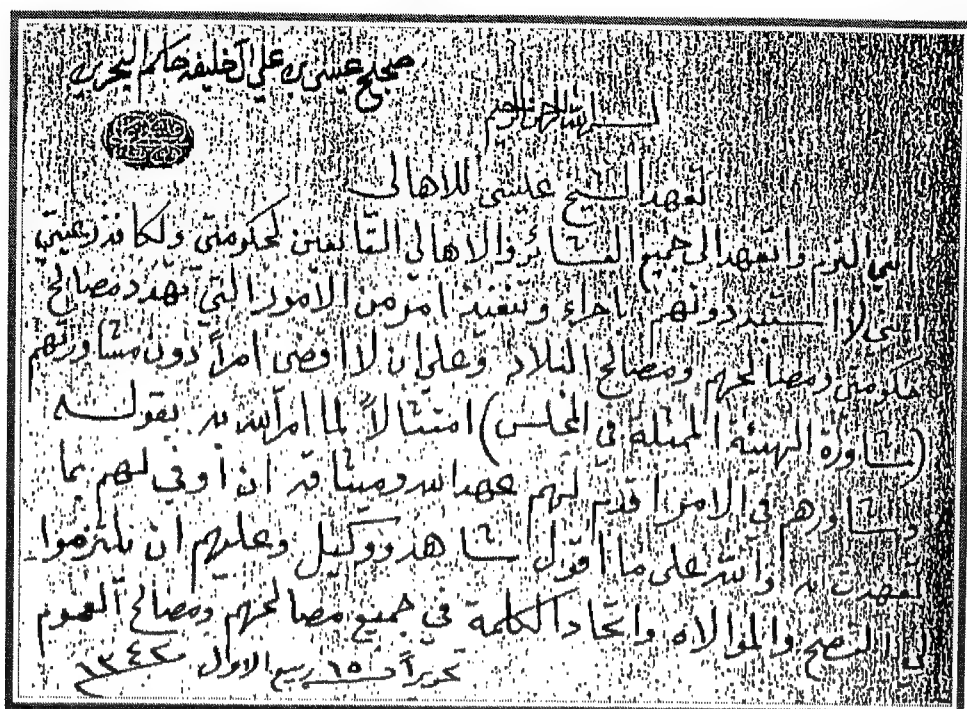 صحيح عيسى بن علي آل خليفة حاكم البحرين
بسم الله الرحمن الرحيم
تعهد الشيخ عيسى للاهالى
اني التزم واتعهد الى جميع العشائر والاهالي التابعين لحكومتي ولكافة رعيتي
انني لا استبد دونهم باجراء وتنفيذ امر من الامور التي تهدد مصالح
حكومتي ومصالحهم ومصالح البلاد وعلي ان لا اقضى امراً دون مشاورتهم
(مشاورة الهيئة الممثلة في المجلس) امتثالاً لما امر الله به بقوله
وشاورهم في الامر اقدم لهم عهد الله وميثاقه ان اوفي لهم بما
تعهدت به والله على ما اقول شاهد ووكيل وعليهم ان يلتزموا
لي النصح والموالاه واتحاد الكلمة في جميع مصالحهم ومصالح العموم
تحريراً في ١٥ ربيع الاول ١٣٤٢